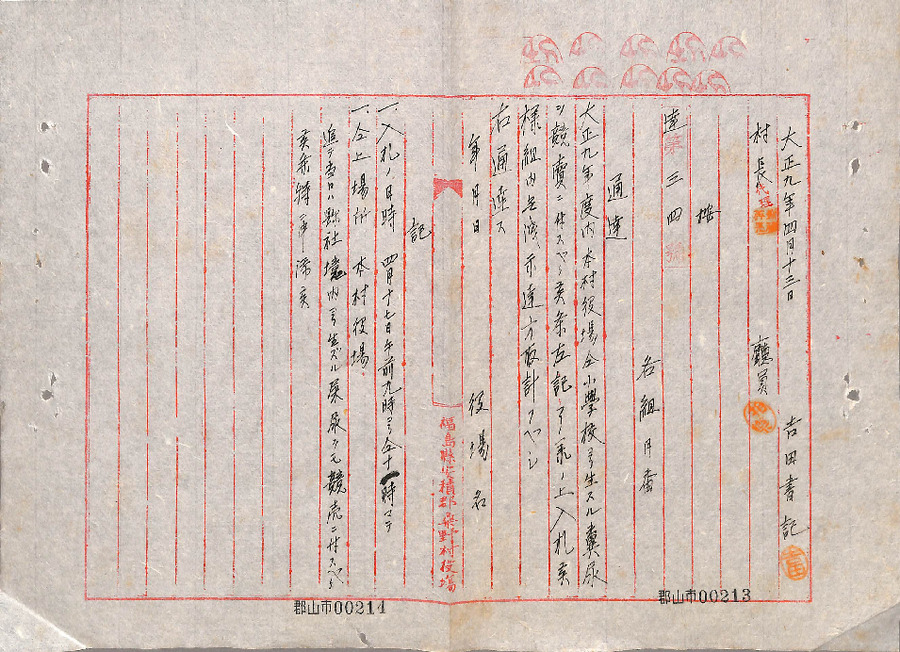 大正九年四月十三日
吉田書記
村長代理
雇員
按
達第三四號
各組月番
通達
大正九年度内本村役場仝小學校ヨリ生スル糞尿
競賣ニ付スベク候条左記了承ノ上入札候
様組内無洩示達方取計フベシ
右通達ス
年月日
役場名
福島縣安積郡桑野村役場
記
一、入札ノ日時 四月十七日午前九時ヨリ仝十一時マデ
一、仝上場所 本村役場
追テ當日ハ縣社境内ヨリ生ズル屎尿ヲモ競売ニ付スベク
候
郡山市00213
郡山市00214